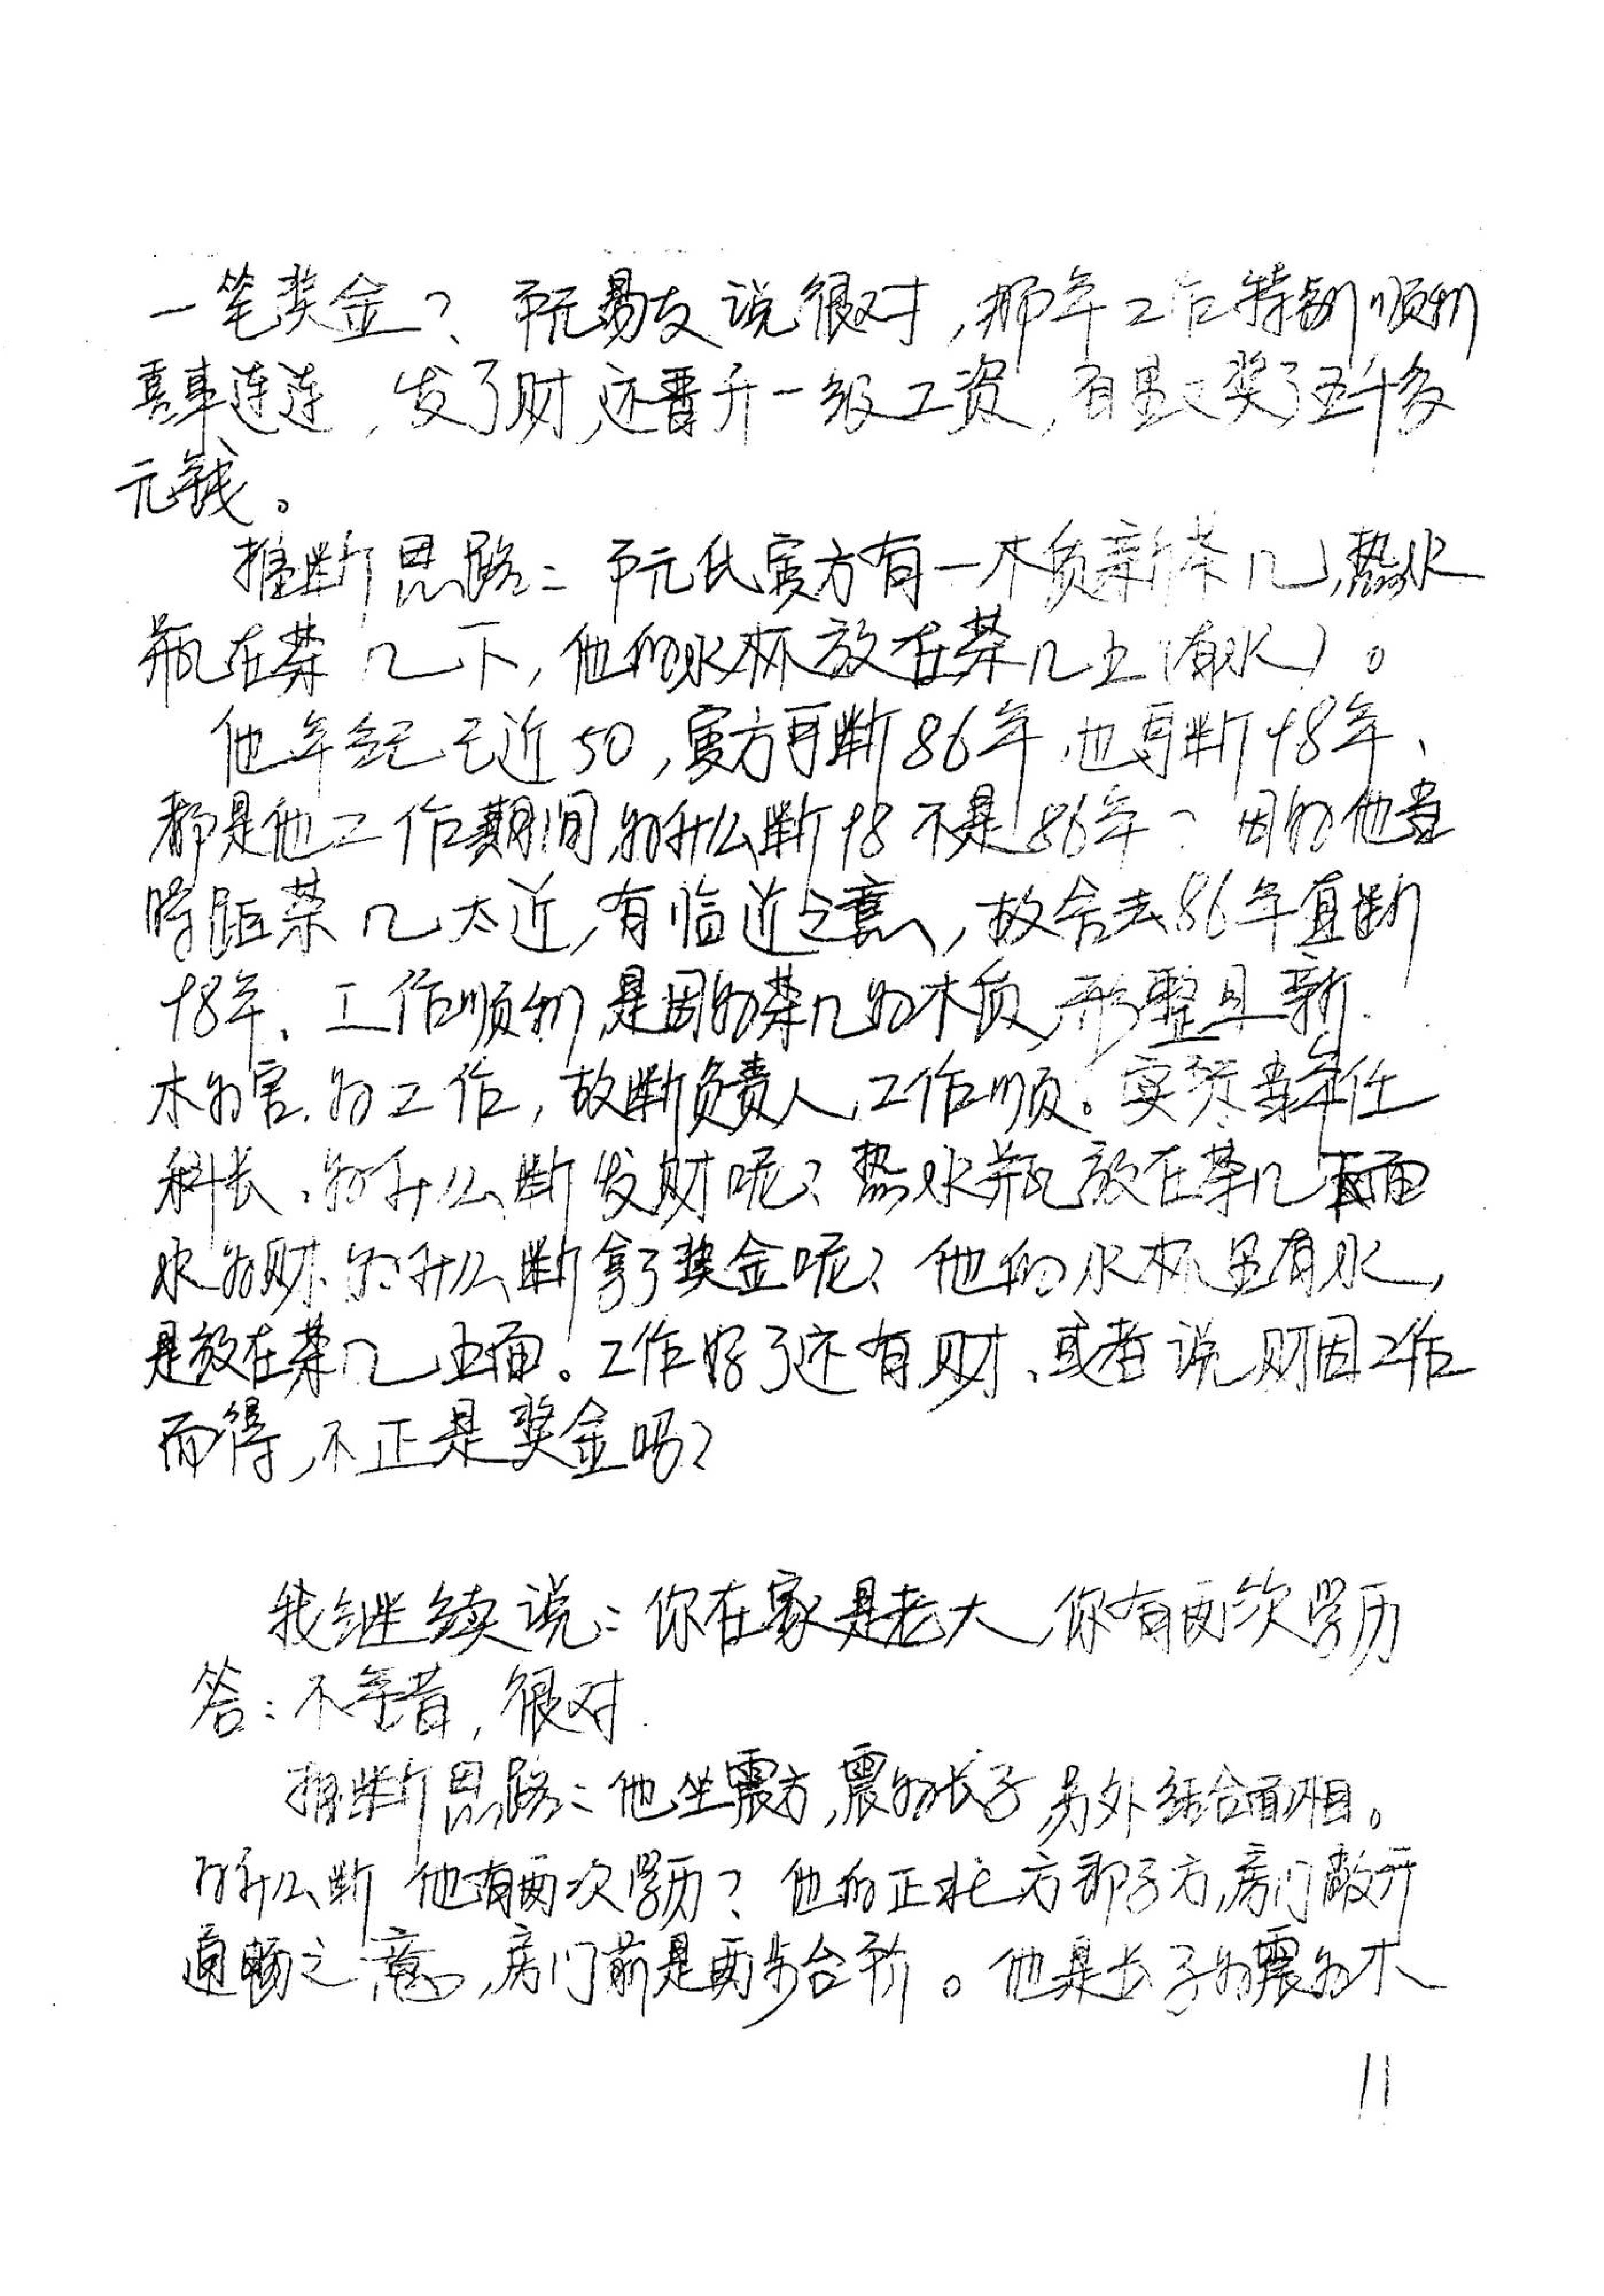 一笔奖金?阮易友说很对,那年工作特别顺利
喜事连连,发了财,还晋升一级工资,有奖了五千多
元钱。
推断思路:阮氏寅方有一木质新茶几,热水
瓶在茶几下,他的水杯放在茶几上(有水)。
他年纪已近50,寅方可断86年,也可断98年、
都是他工作期间,为什么断98不是86年?因为他当
时距茶几太近,有临近之意,故舍去86年直断
98年、工作顺利是因为茶几为木质,形整且新.
木为官.为工作,故断负责人,工作顺。实际当年任
科长.为什么断发财呢?热水瓶放在茶几下面
水为财.为什么断拿了奖金呢?他的水杯里有水,
是放在茶几上面。工作好了还有财、或者说财因工作
而得,不正是奖金吗?
我继续说:你在家是老大,你有两次学历
答:不错,很对.
推断思路:他坐震方,震为长子,另外结合面相。
为什么断他有两次学历?他的正北方即子方,房门敞开
通畅之意,房门前是两步台阶。他是长子为震为木
11